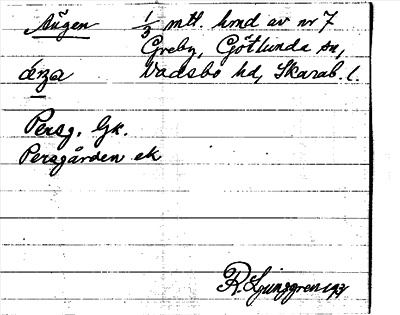 Äŭgen 1/3 mtl. hmd av nr 7
Greby, Götlunda sn,
Vadsbo hd, Skarab. l.
Persg. Gk.
Persgården ek
R. Ljunggren